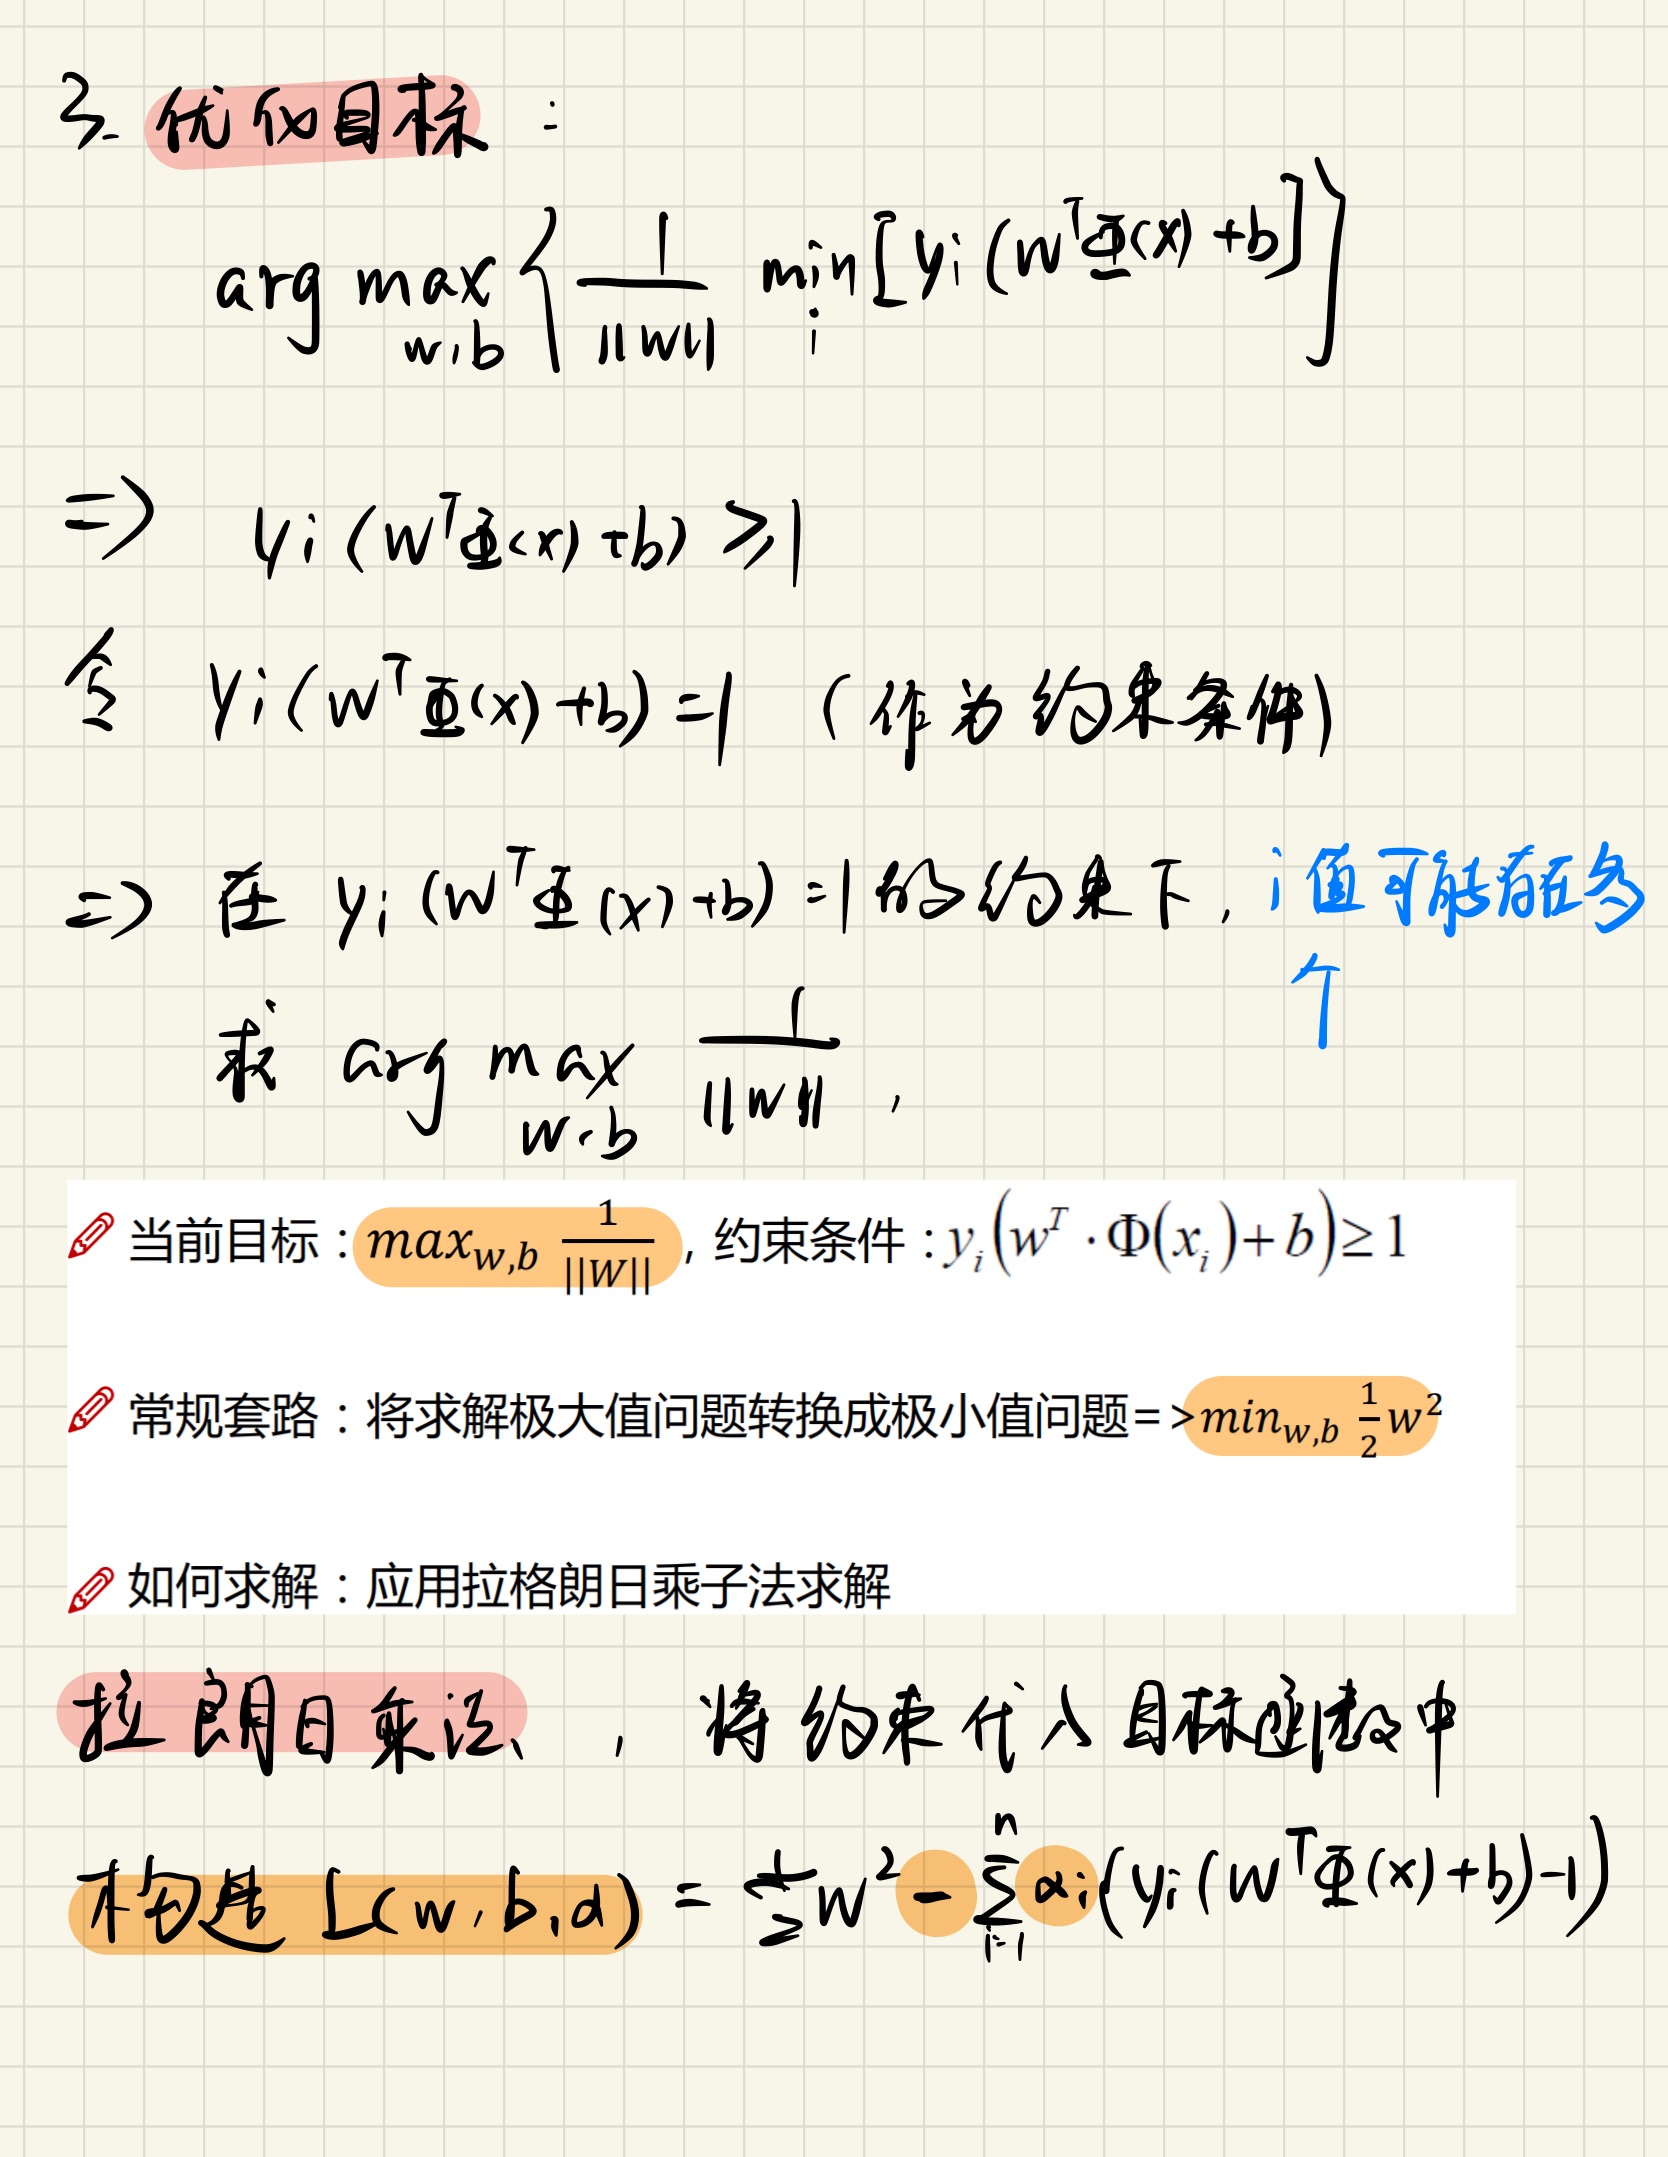 3. 优化目标：
arg max w,b { 1/||w|| min i [yi(wᵀΦ(x)+b]}
=> yi(wᵀΦ(x)+b) ≥ 1
令 yi(wᵀΦ(x)+b) = 1 （作为约束条件）
=> 在 yi(wᵀΦ(x)+b) = 1 的约束下, i值可能存在多
个
求 arg max w,b 1/||w|| ,
当前目标：max_{w,b} 1/||W||, 约束条件：y_i(w^T·Φ(x_i)+b)≥1
常规套路：将求解极大值问题转换成极小值问题=>min_{w,b} 1/2 w²
如何求解：应用拉格朗日乘子法求解
拉朗日乘法, 将约束代入目标函数中
构造 L(w,b,α) = 1/2 w² - Σ_{i=1}^{n} αi(yi(wᵀΦ(x)+b)-1)